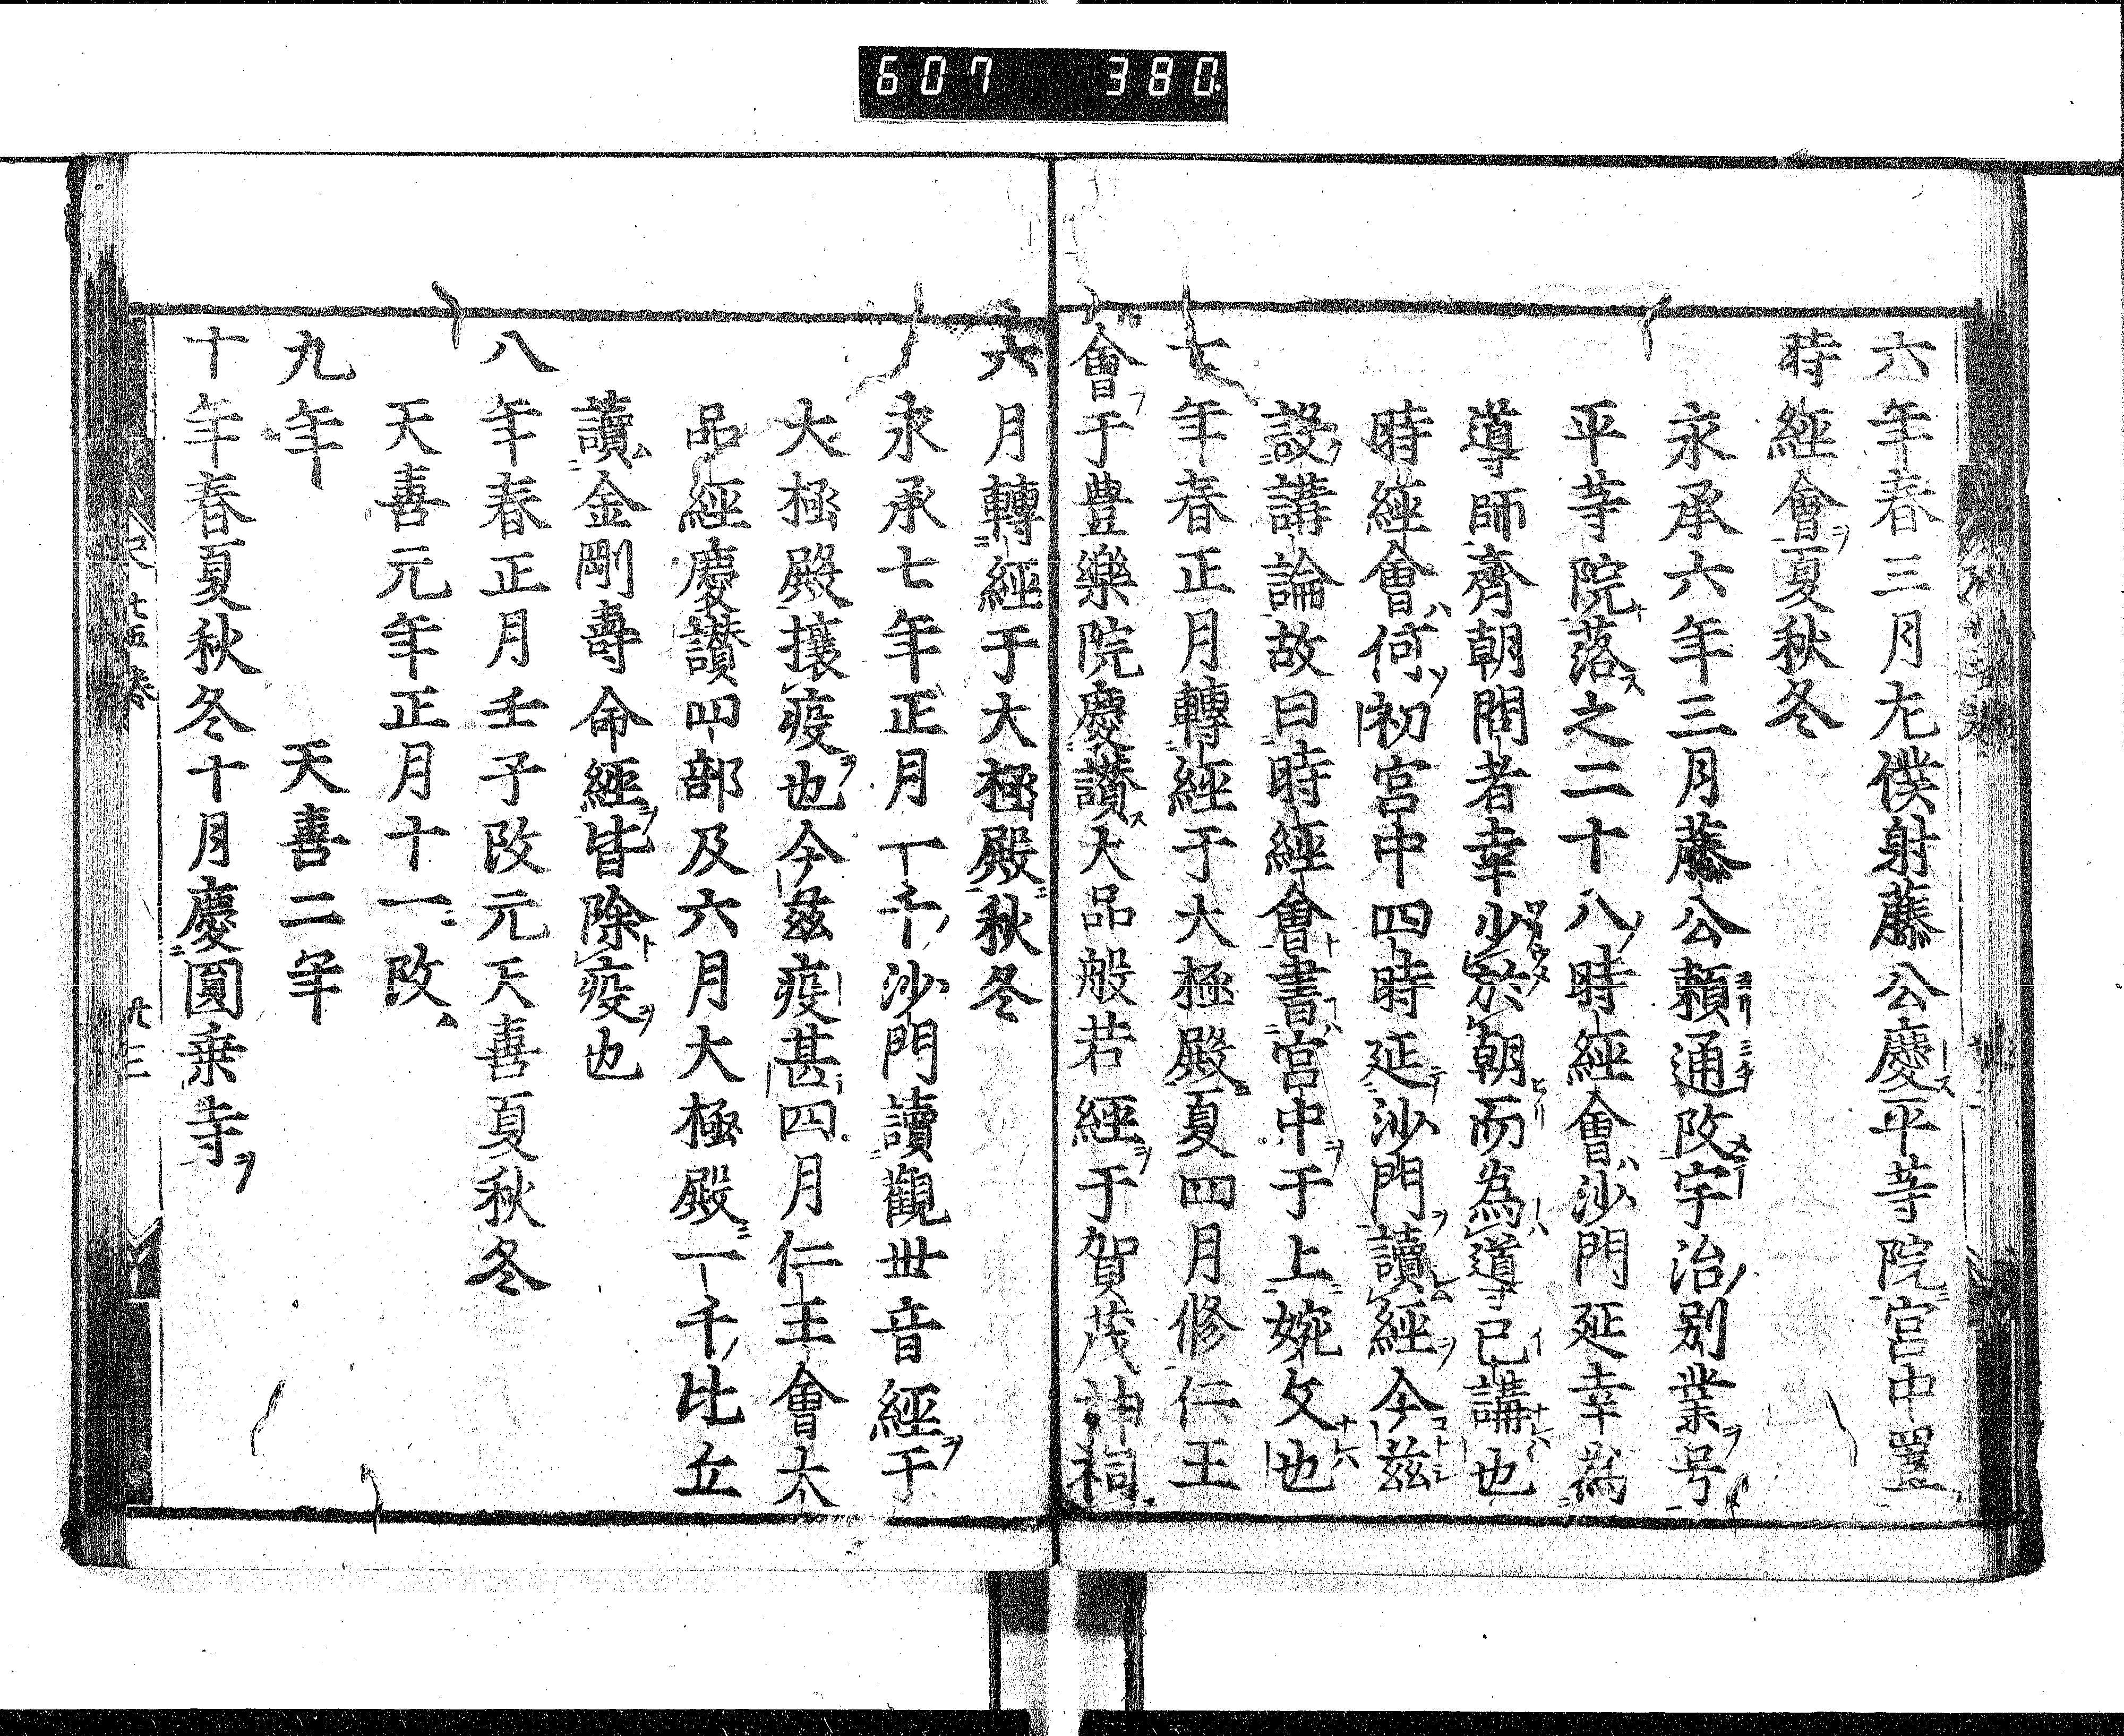 607 380
六年春三月左僕射藤公慶平等院宮中置
時經會夏秋冬
永承六年三月藤公頼通改宇治別業号
平等院落之二十八時經會沙門延幸為
導師齊朝間者幸少於朝而為導已講也
時經會何初宮中四時延沙門讀經今茲
設講論故曰時經會書宮中于上婉文也
七年春正月轉經于大極殿夏四月修仁王
會于豊樂院慶讃大品般若經于賀茂神祠
六月轉經于大極殿秋冬
永承七年正月一千沙門讀觀世音經于
大極殿攘疫也今茲疫甚四月仁王會大
品經慶讃四部及六月大極殿一千比丘
讀金剛壽命經皆除疫也
八年春正月壬子改元天喜夏秋冬
天喜元年正月十一改
九年 天喜二年
十年春夏秋冬十月慶圓乗寺